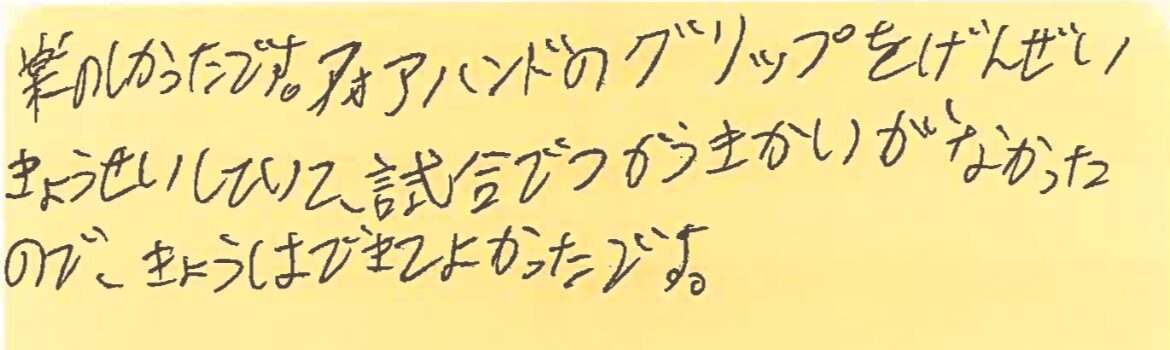 楽のしかったです。フォアハンドのグリップをげんぜい
きょうせいしていて、試合でつかうきかいがなかった
ので、きょうはできてよかったです。